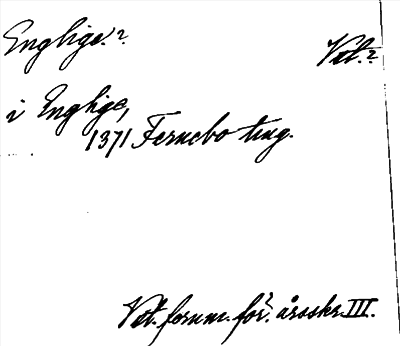 Englige.? Vstl.?
i Englige,
1371 Fernebo ting.
Vstl. fornm. för. årsskr. III.